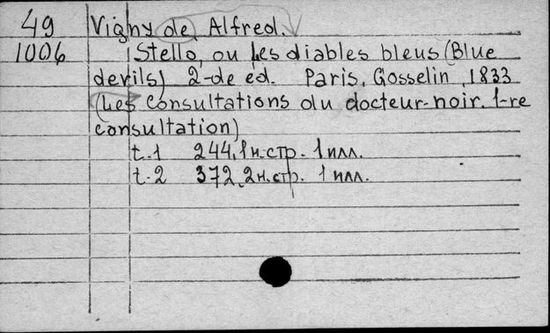 49 Vigny de, Alfred.
1006 Stello, ou les diables bleus (Blue
devils) 2-de ed. Paris, Gosselin, 1833
(Les consultations du docteur-noir. 1-re
consultation)
t.1 244, 1 н.стр. 1 илл.
t.2 372, 2 н.стр. 1 илл.